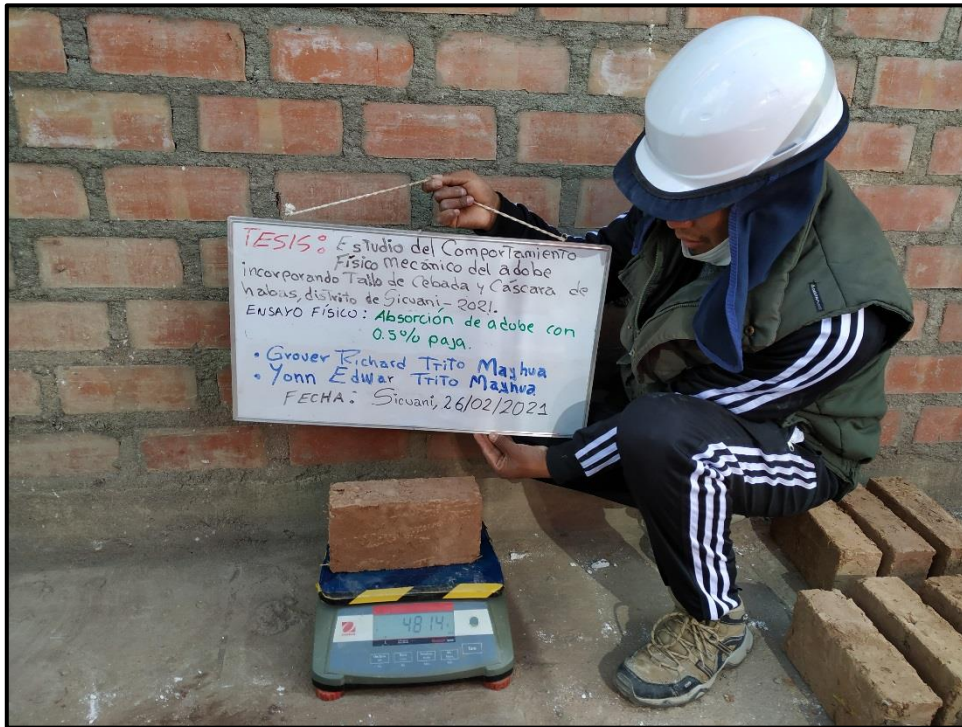 TESIS: Estudio del Comportamiento
Físico Mecánico del adobe
incorporando Tallo de Cebada y Cáscara de
habas, distrito de Sicuani - 2021.
ENSAYO FÍSICO: Absorción de adobe con
0.5% paja.
• Grover Richard Ttito Mayhua
• Yonn Edwar Ttito Mayhua
FECHA: Sicuani, 26/02/2021
4814.
OHAUS